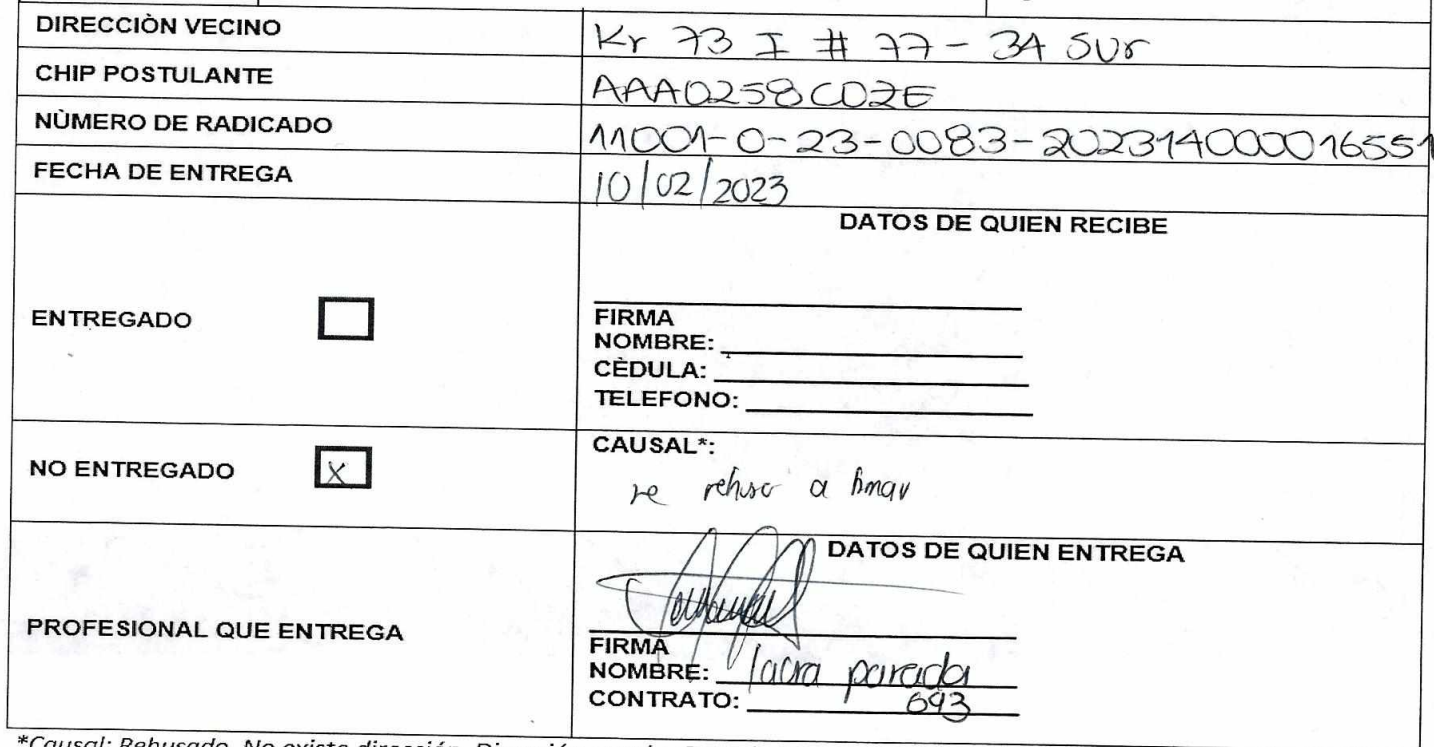 DIRECCIÒN VECINO Kr 73 I # 77 - 34 SUr
CHIP POSTULANTE AAA0258CDZE
NÙMERO DE RADICADO 11001-0-23-0083-202314000016551
FECHA DE ENTREGA 10/02/2023
DATOS DE QUIEN RECIBE
ENTREGADO
FIRMA
NOMBRE:
CÈDULA:
TELEFONO:
NO ENTREGADO X
CAUSAL*:
se rehuso a firmar
DATOS DE QUIEN ENTREGA
PROFESIONAL QUE ENTREGA
FIRMA
NOMBRE: laura parada
CONTRATO: 693
*Causal: Rehusado, No existe dirección,